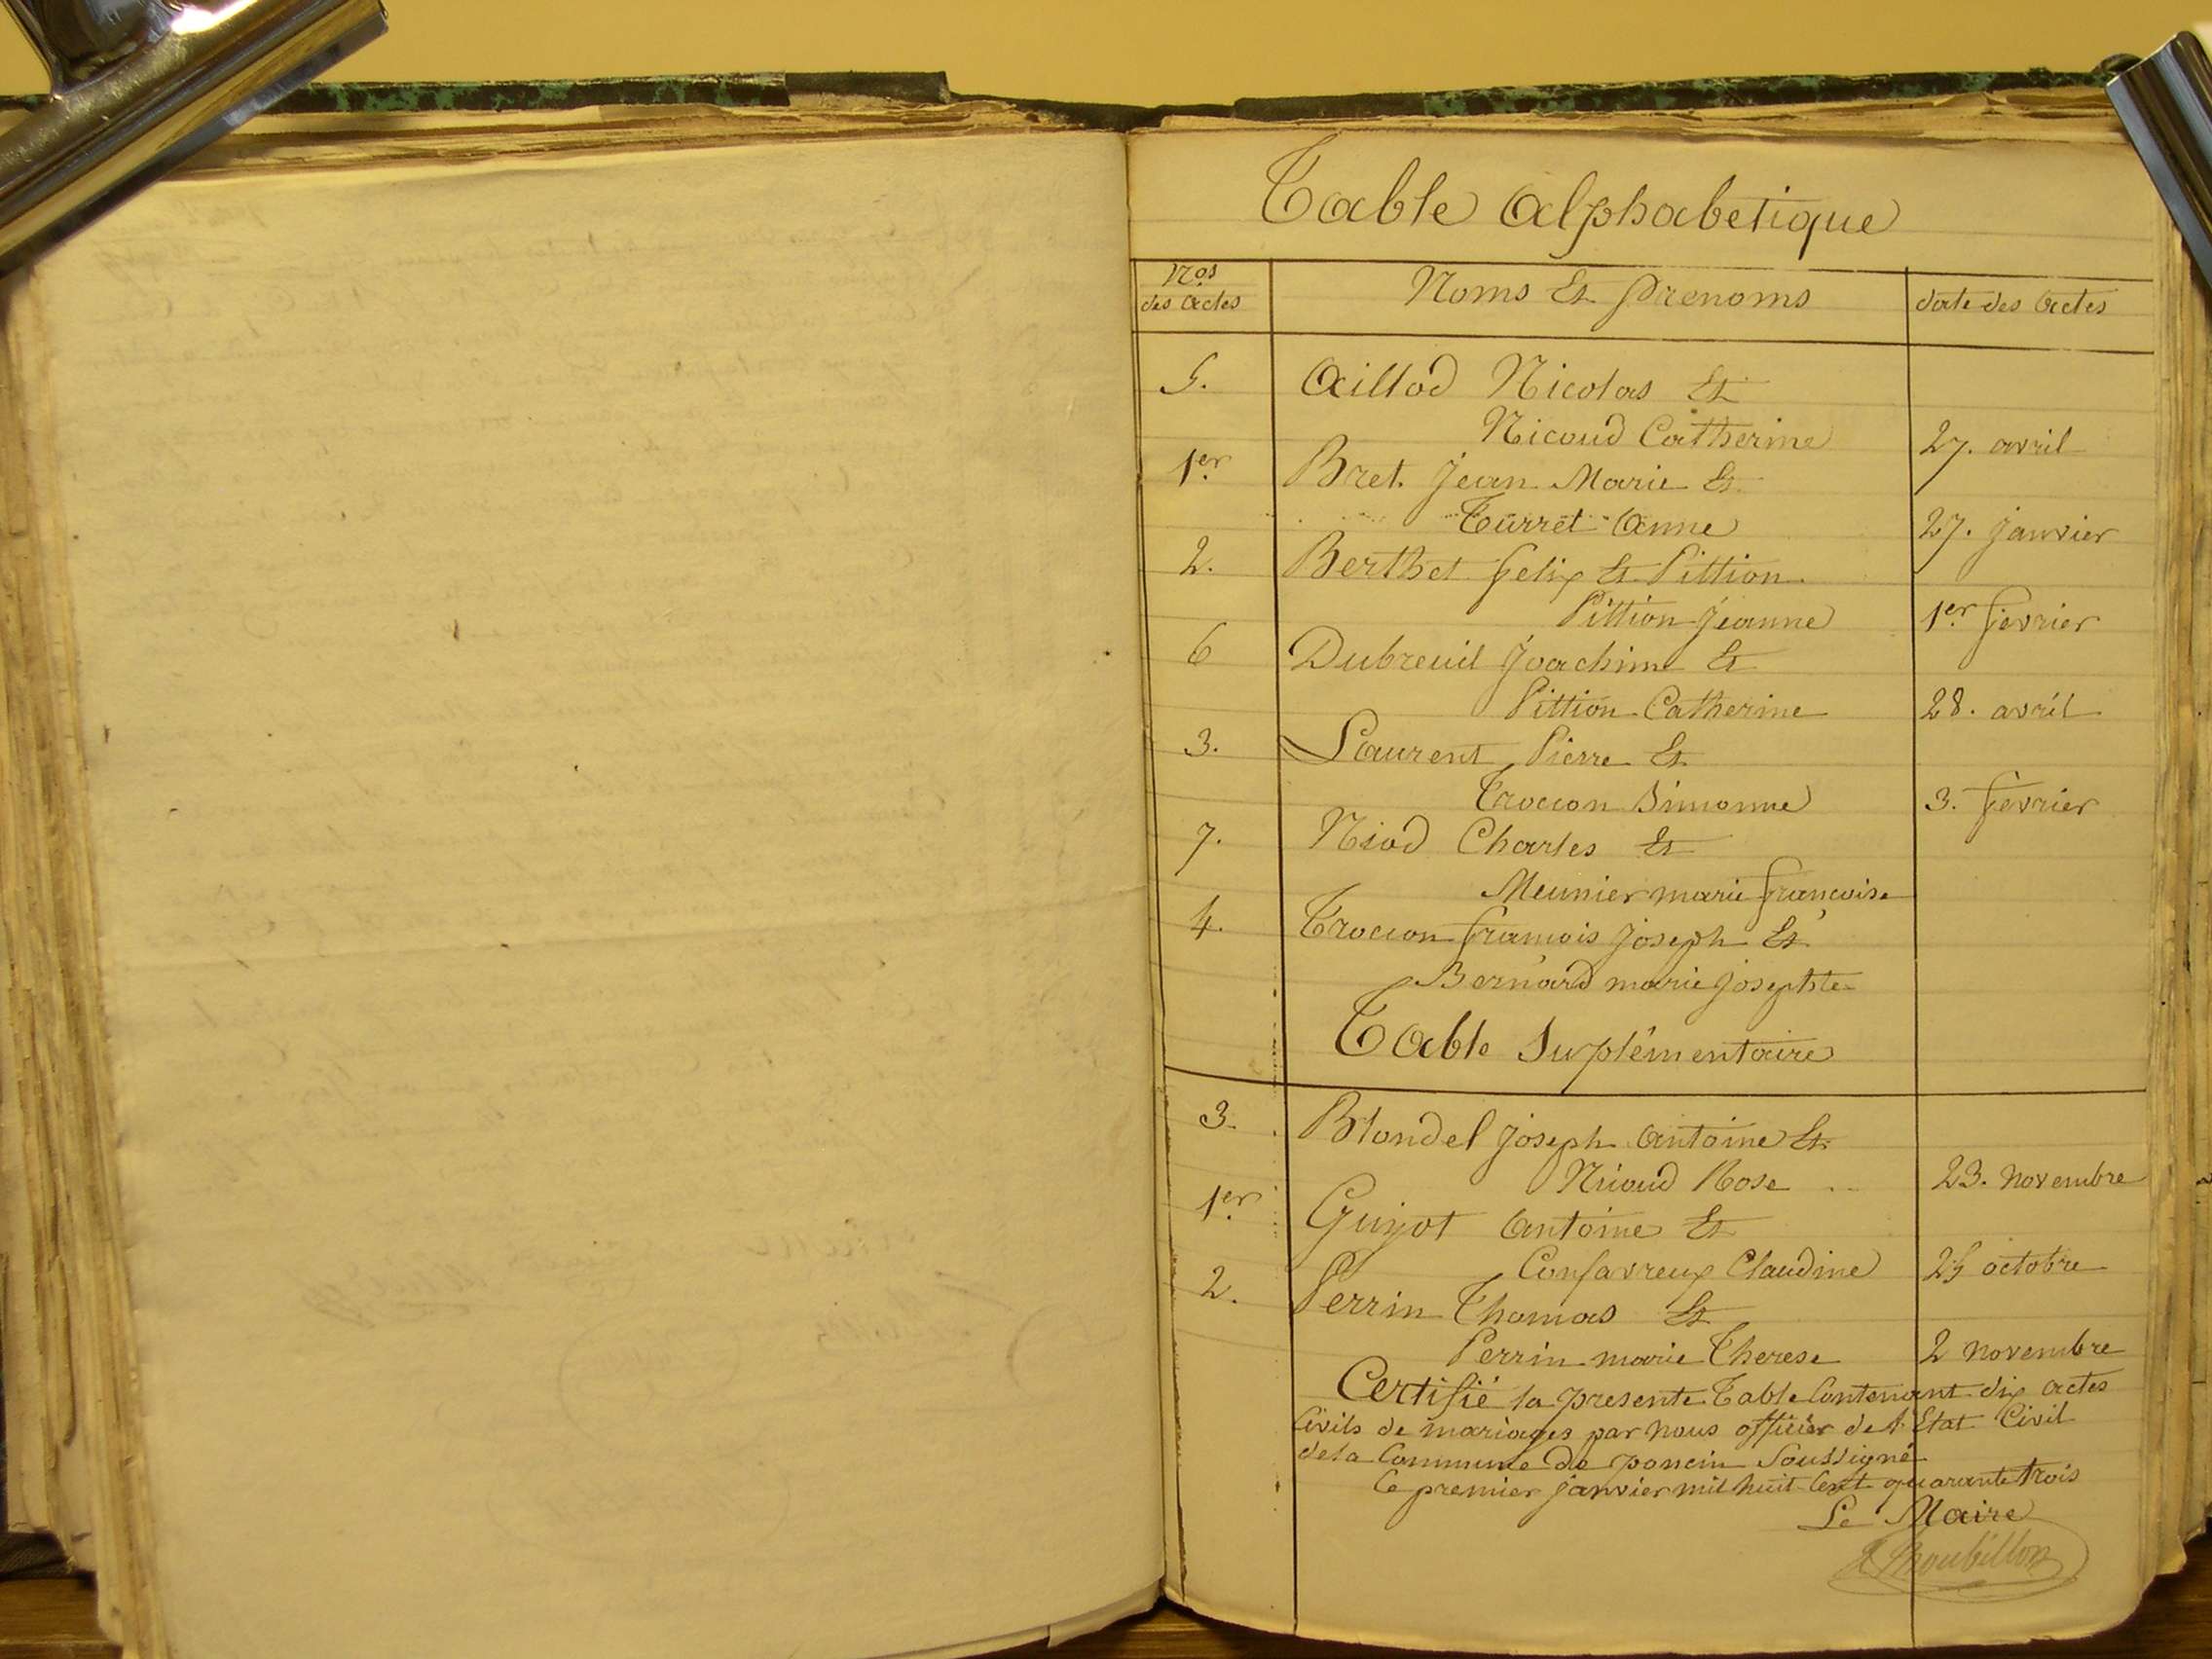 Table Alphabetique
Nos des Actes
Noms Et Prenoms
date des Actes
5. Aillod Nicolas Et
Nicoud Catherine 27. avril
1er Bret. Jean Marie Et
Turret Anne 27. janvier
2. Berthet felix Et Pittion
Pittion Jeanne 1er fevrier
6 Dubreuil Joachim Et
Pittion Catherine 28. avril
3. Laurent Pierre Et
Trocion Simonne 3. fevrier
7. Niod Charles Et
Meunier marie francoise
4. Trocion francois Joseph Et
Bernard marie Josephte
Table Suplémentaire
3. Blondel Joseph Antoine Et
Rose 23. Novembre
1er Guyot Antoine Et
Confavreux Claudine 25 octobre
2. Perrin Thomas Et
Perrin marie Therese 2 Novembre
Certifié la presente Table Contenant dix actes
Civils de mariages par Nous officier de l'Etat Civil
dela Commune de poncin Soussigné
Ce premier janvier mil huit Cent quarante trois
Le Maire